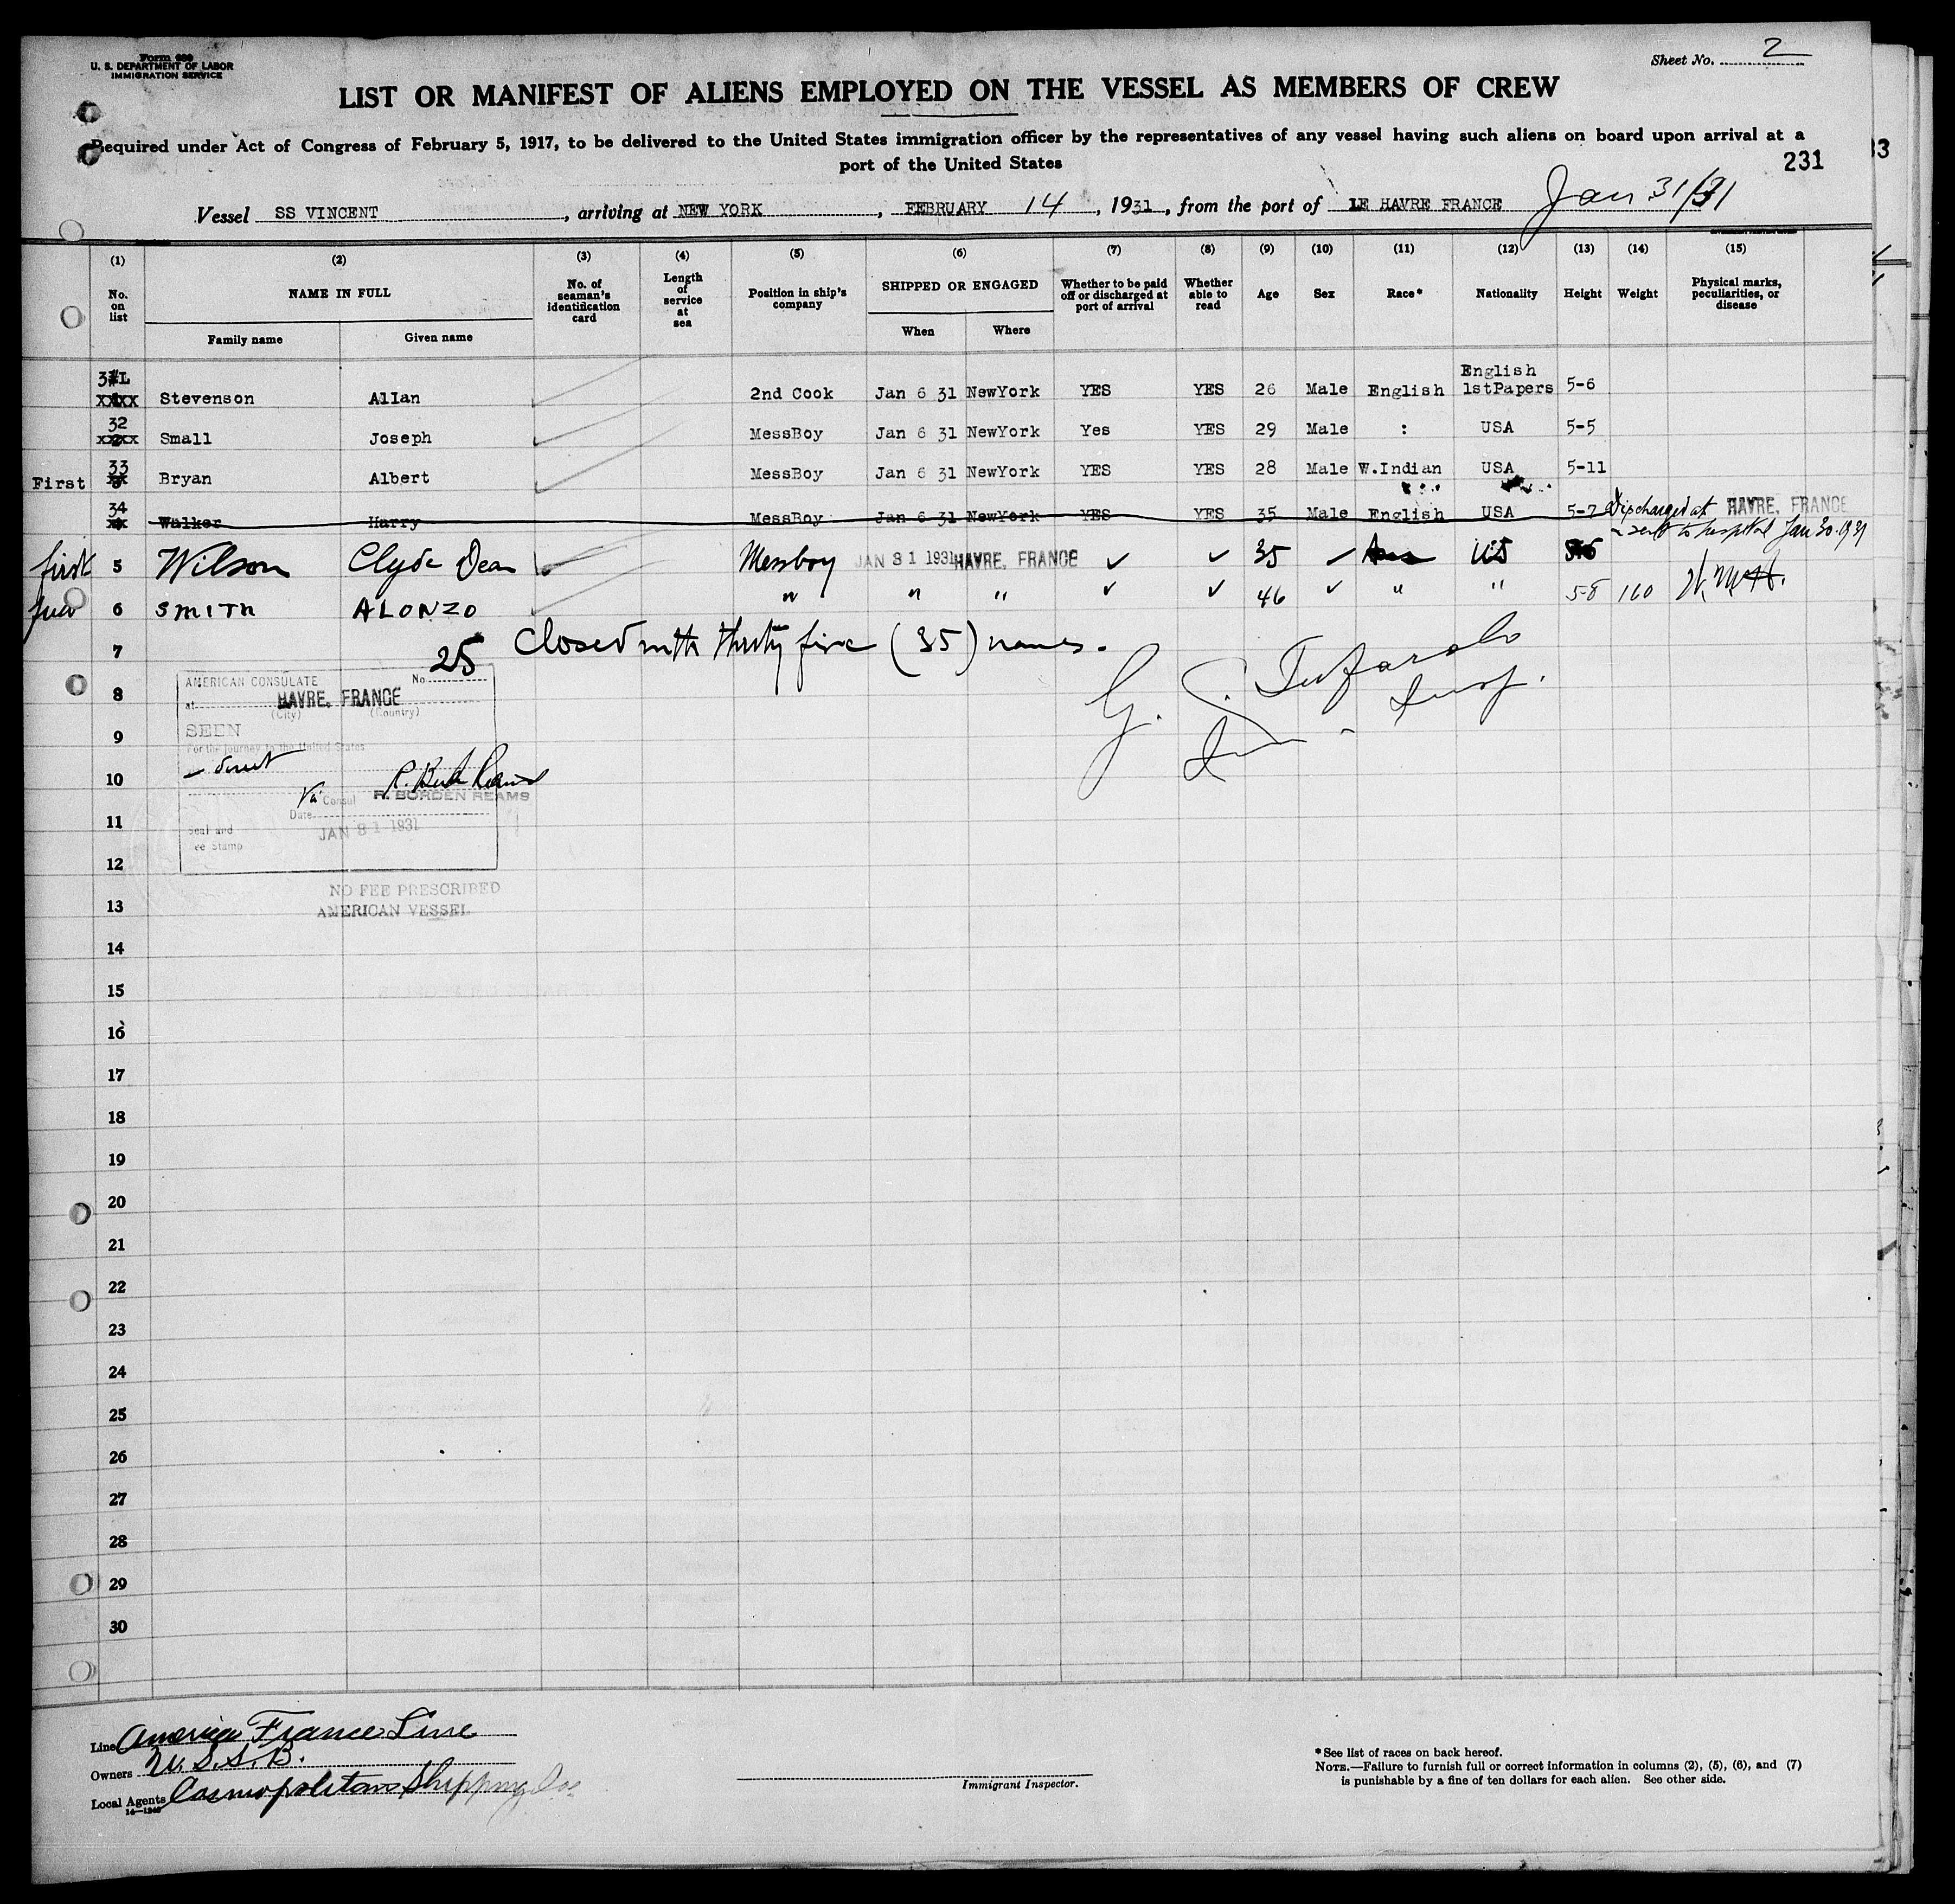 Form 680
U. S. DEPARTMENT OF LABOR
IMMIGRATION SERVICE
Sheet No. 2
LIST OR MANIFEST OF ALIENS EMPLOYED ON THE VESSEL AS MEMBERS OF CREW
Required under Act of Congress of February 5, 1917, to be delivered to the United States immigration officer by the representatives of any vessel having such aliens on board upon arrival at a
port of the United States
231
33
Vessel SS VINCENT, arriving at NEW YORK, FEBRUARY 14, 1931, from the port of LE HAVRE FRANCE Jan 31/31
(1) (2) (3) (4) (5) (6) (7) (8) (9) (10) (11) (12) (13) (14) (15)
No. on list
NAME IN FULL
Family name Given name
No. of seaman's identification card
Length of service at sea
Position in ship's company
SHIPPED OR ENGAGED
When Where
Whether to be paid off or discharged at port of arrival
Whether able to read
Age
Sex
Race*
Nationality
Height
Weight
Physical marks, peculiarities, or disease
Stevenson Allan 2nd Cook Jan 6 31 NewYork YES YES 26 Male English English 1stPapers 5-6
32 Small Joseph MessBoy Jan 6 31 NewYork Yes YES 29 Male : USA 5-5
First 33 Bryan Albert MessBoy Jan 6 31 NewYork YES YES 28 Male W.Indian USA 5-11
34 Walker Harry MessBoy Jan 6 31 NewYork YES YES 35 Male English USA 5-7 Discharged at HAVRE, FRANCE
sent to hospital Jan 30-1931
first 5 Wilson Clyde Dean Messboy JAN 31 1931 HAVRE, FRANCE ✓ ✓ 35 ✓ US
6 SMITH ALONZO " " " ✓ ✓ 46 ✓ " " 5-8 160
7 Closed with thirty five (35) names.
25
AMERICAN CONSULATE No.
at HAVRE, FRANCE
(City) (Country)
SEEN
For the journey to the United States
direct
Consul R. BORDEN REAMS
Date JAN 31 1931
Seal and
Fee Stamp
NO FEE PRESCRIBED
AMERICAN VESSEL
G. S.
Insp.
8
9
10
11
12
13
14
15
16
17
18
19
20
21
22
23
24
25
26
27
28
29
30
Line America France Line
Owners U.S.S.B.
Local Agents Cosmopolitan Shipping Co.
14—1240
Immigrant Inspector.
*See list of races on back hereof.
NOTE.—Failure to furnish full or correct information in columns (2), (5), (6), and (7)
is punishable by a fine of ten dollars for each alien. See other side.